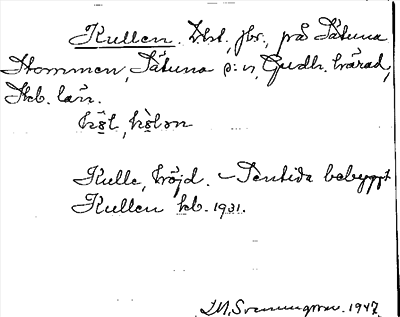 Kullen. Tbt, jbr, på Sätuna
Stommen, Sätuna s:n, Gudh. härad,
Skb. län.
kɵ̀l, kɵ̀lən
Kulle, höjd. – Sentida bebyggt
Kullen kb. 1931.
1947.